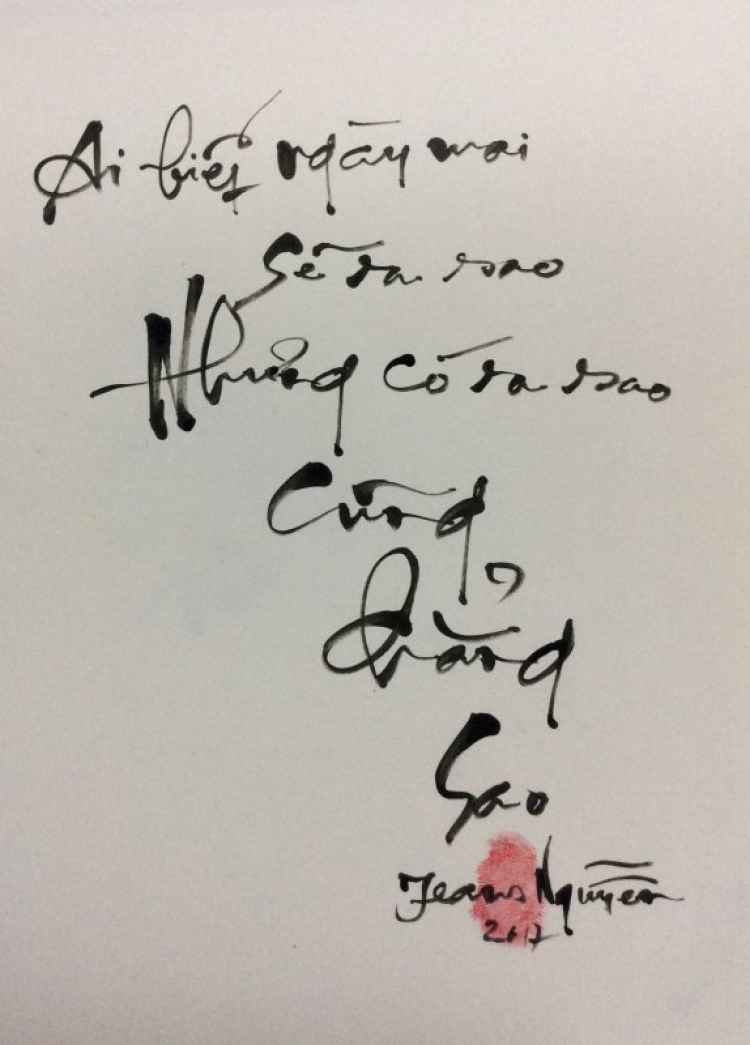 Ai biết ngày mai
Sẽ ra sao
Nhưng có ra sao
Cũng
Chẳng
Sao
Jeans Nguyễn
2017